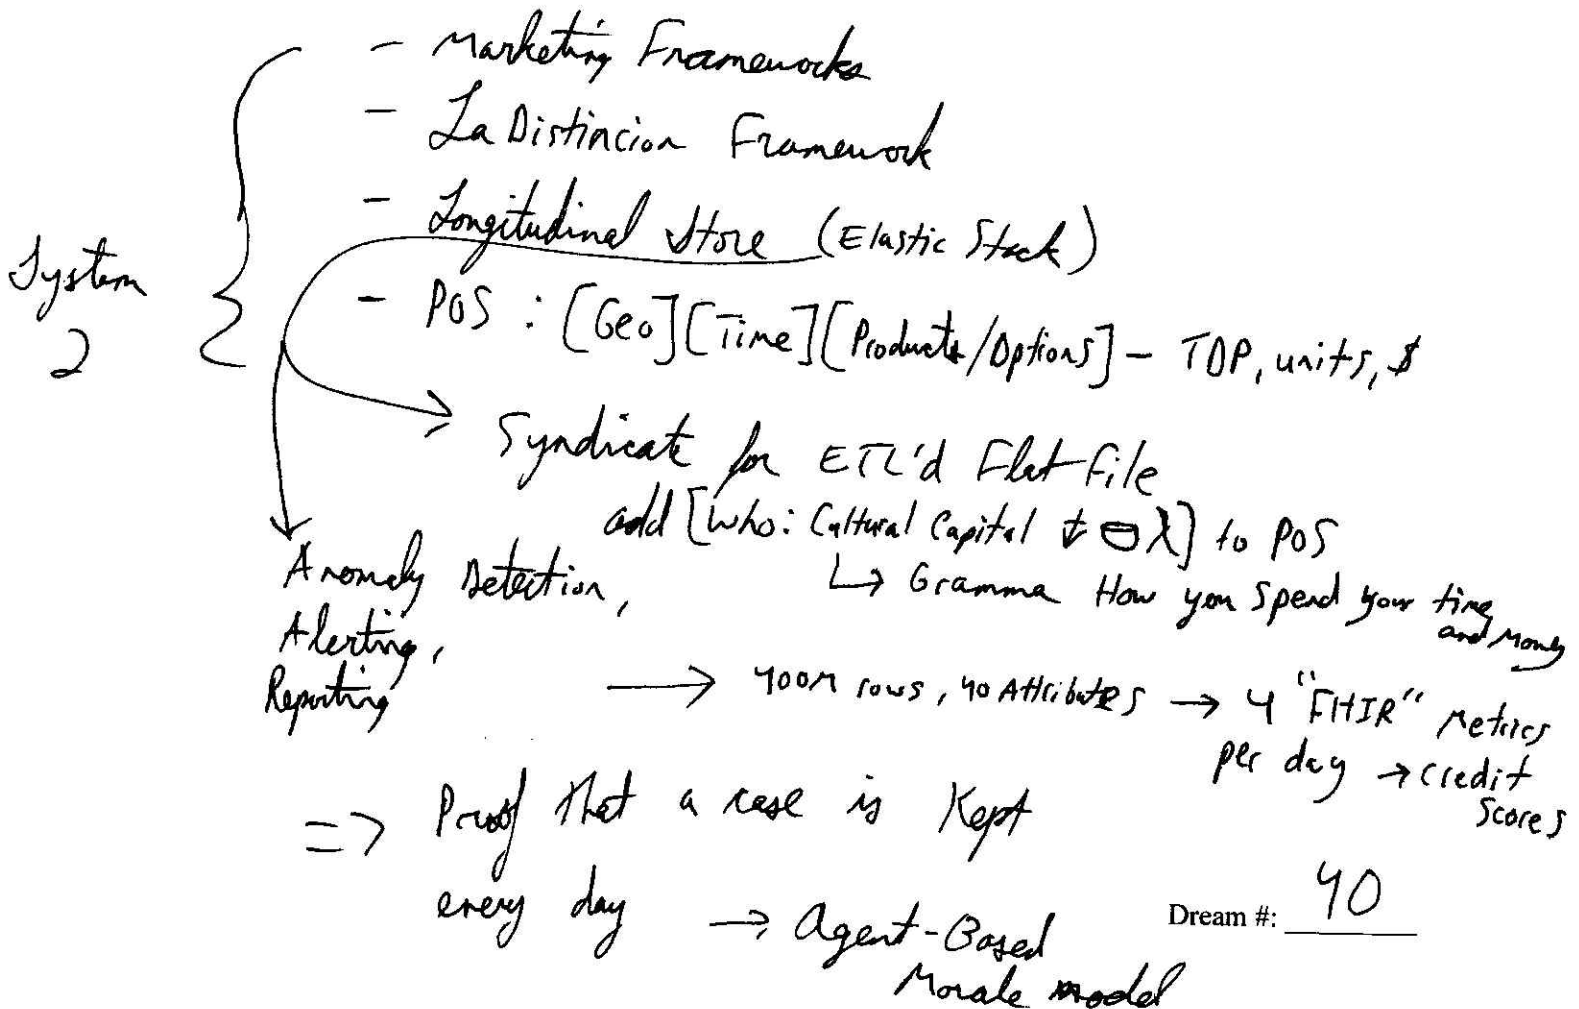 - Marketing Frameworks
- La Distincion Framework
- Longitudinal Store (Elastic Stack)
System
2
- POS : [Geo][Time][Products/Options] - TDP, units, $
Syndicate for ETL'd Flat File
add [Who: Cultural Capital] to POS
↳ Gramma How you spend your time
and Money
Anomaly Detection,
Alerting,
Reporting
→ 400M rows, 40 Attributes → 4 "FHIR" Metrics
per day → credit
scores
=> Proof that a case is Kept
every day → Agent-Based
Morale model
Dream #: 40